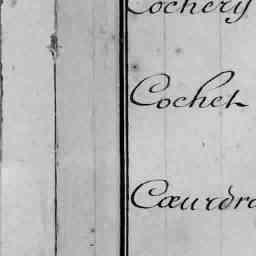 Cochery
Cochet
Cœurdr